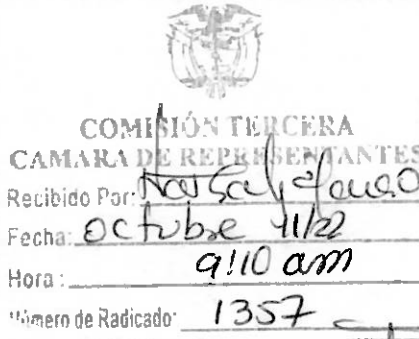 COMISIÓN TERCERA
CAMARA DE REPRESENTANTES
Recibido Por:
Fecha: octubre 11/22
Hora: 9:10 am
Número de Radicado: 1357